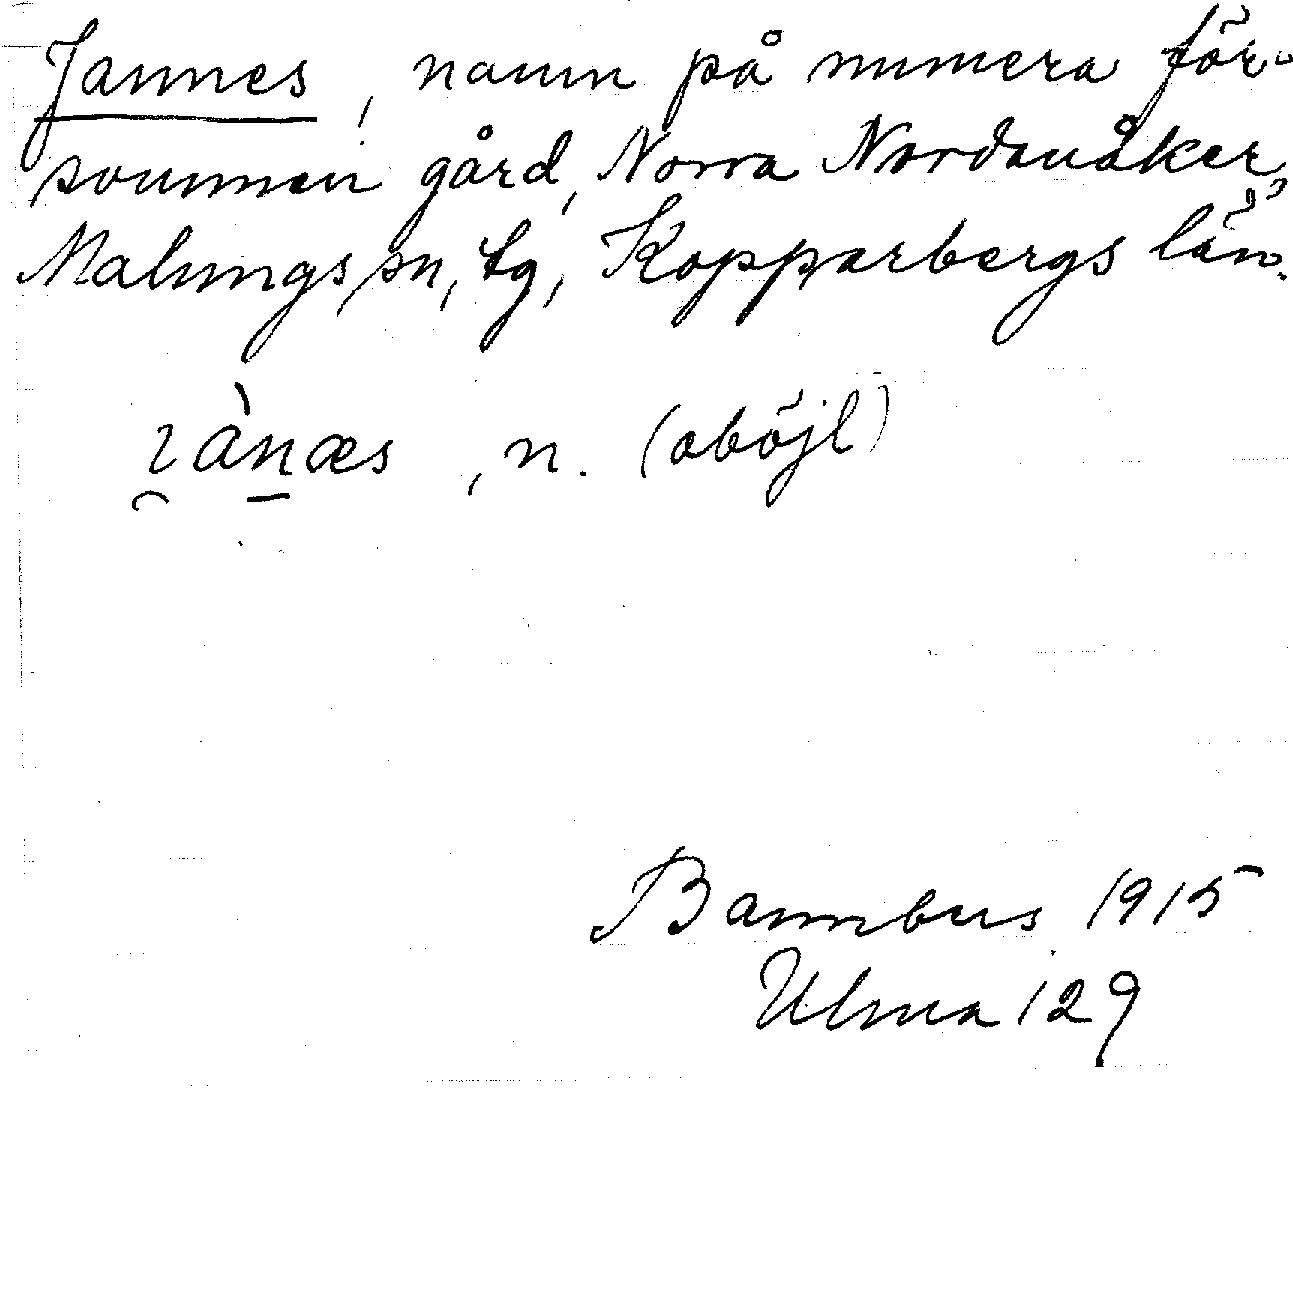 Jannes, namn på numera för-
svunnen gård, Norra Nordanåker,
Malungs sn, tg, Kopparbergs län.
ı̯ànæs, n. (oböjl)
Bannbers 1915
Ulma 129